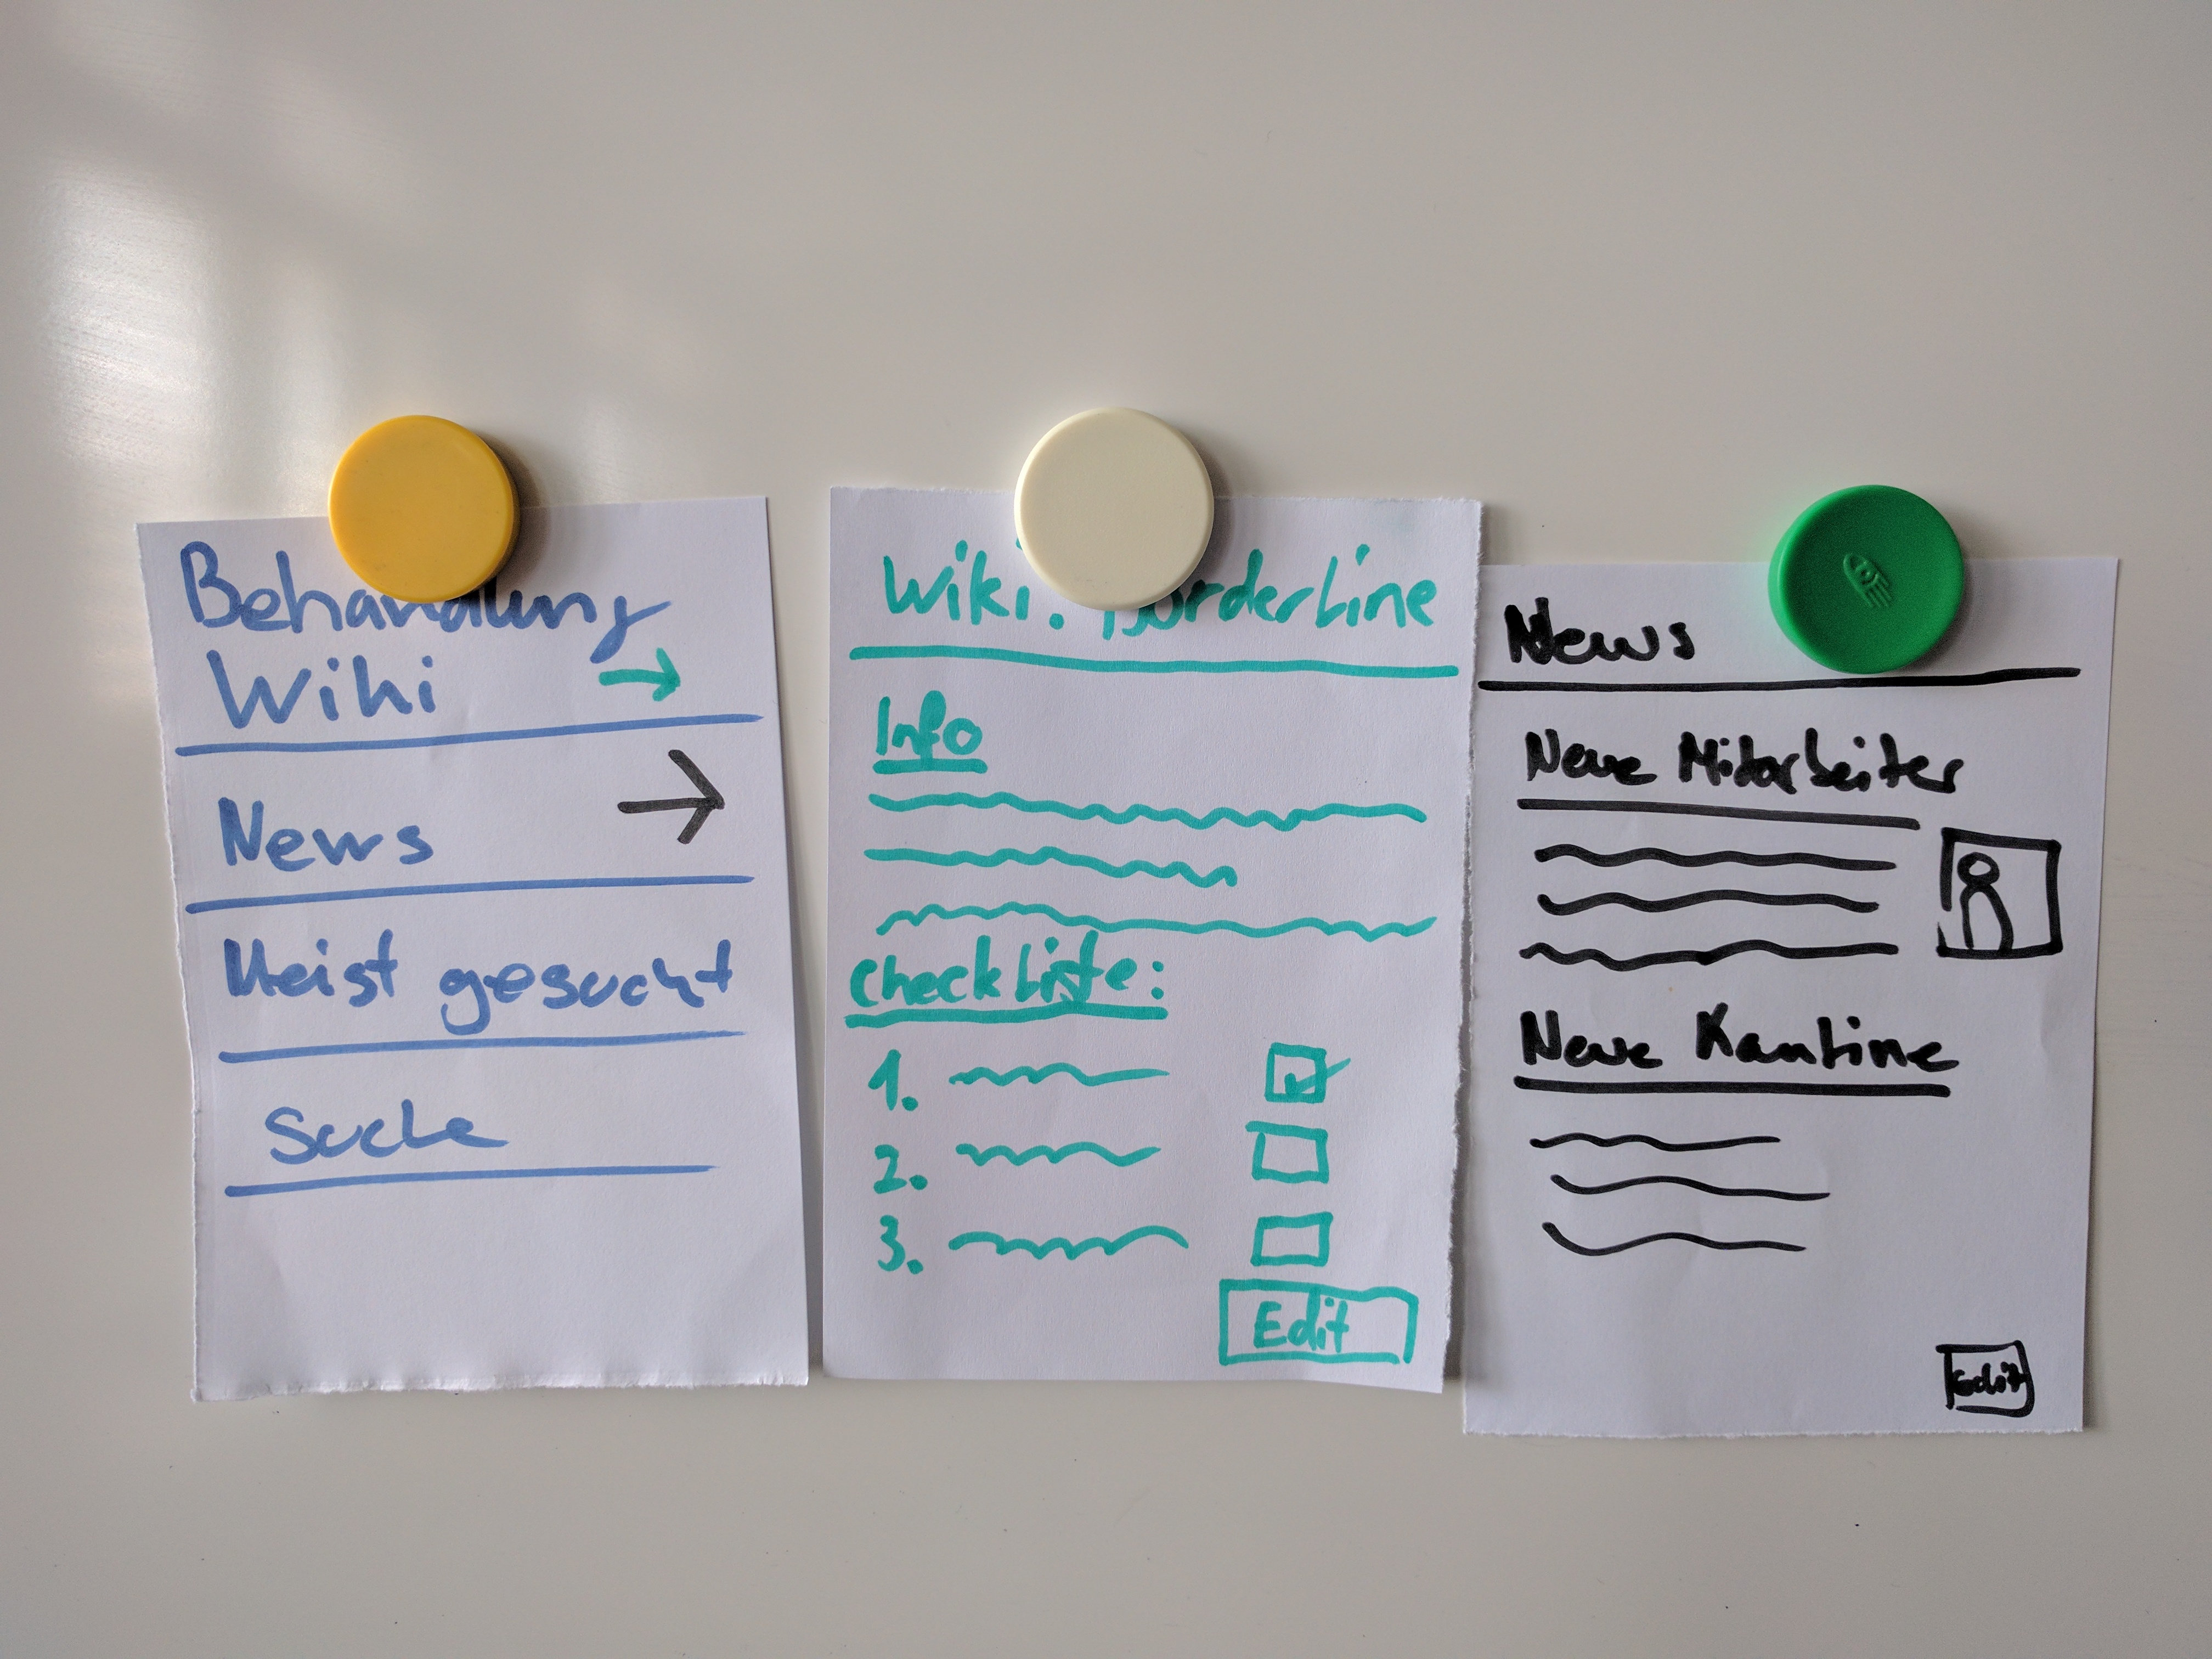 Behandlung
Wiki
News
Meist gesucht
Suche
Wiki: Borderline
Info
Checkliste:
1.
2.
3.
Edit
News
Neue Mitarbeiter
Neue Kantine
Edit